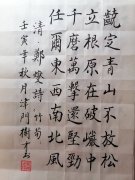 齩定青山不放松
立根原在破巖中
千磨萬擊還堅勁
任爾東西南北風
清 鄭燮詩 竹
壬寅年秋月津門樹